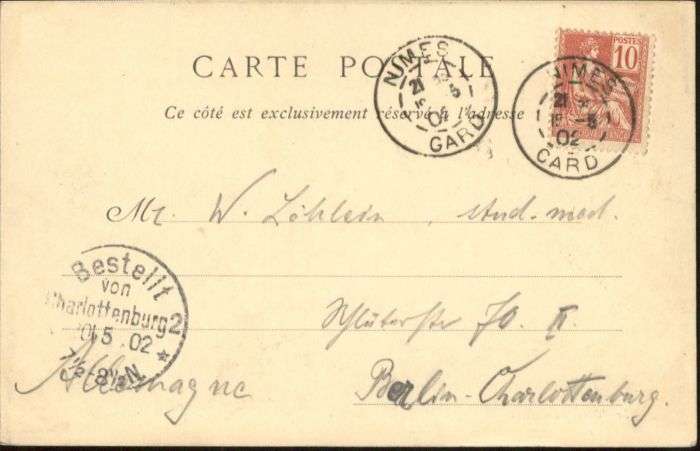 CARTE POSTALE
Ce côté est exclusivement réservé à l'adresse
POSTES
10
NIMES
21
5
02
GARD
NIMES
21 *
18 -5
02
GARD
Mr. W. Löhlein, stud. med.
Schlüterstr 70. II.
Berlin-Charlottenburg.
Allemagne
Bestellt
von
Charlottenburg 2
5 02
7½-8½N. *